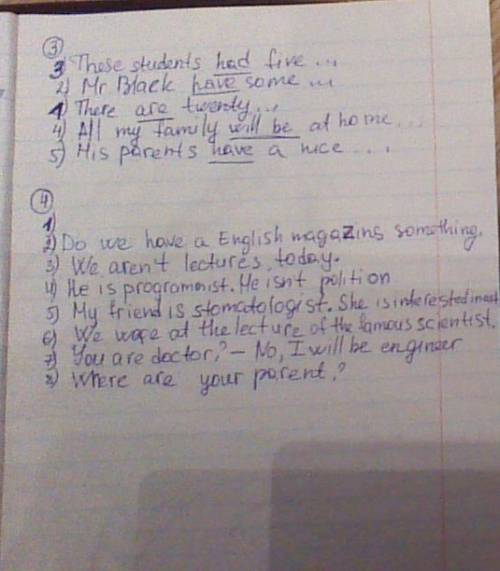 ③
3) These students had five ...
2) Mr Black have some ...
1) There are twenty...
4) All my family will be at home...
5) His parents have a nice ...
④
1)
2) Do we have a English magazins something.
3) We aren't lectures today.
4) He is programmist. He isn't polition
5) My friend is stomatologist. She is interested in
6) We were at the lecture of the famous scientist.
7) You are doctor? - No, I will be engineer
8) Where are your parent?